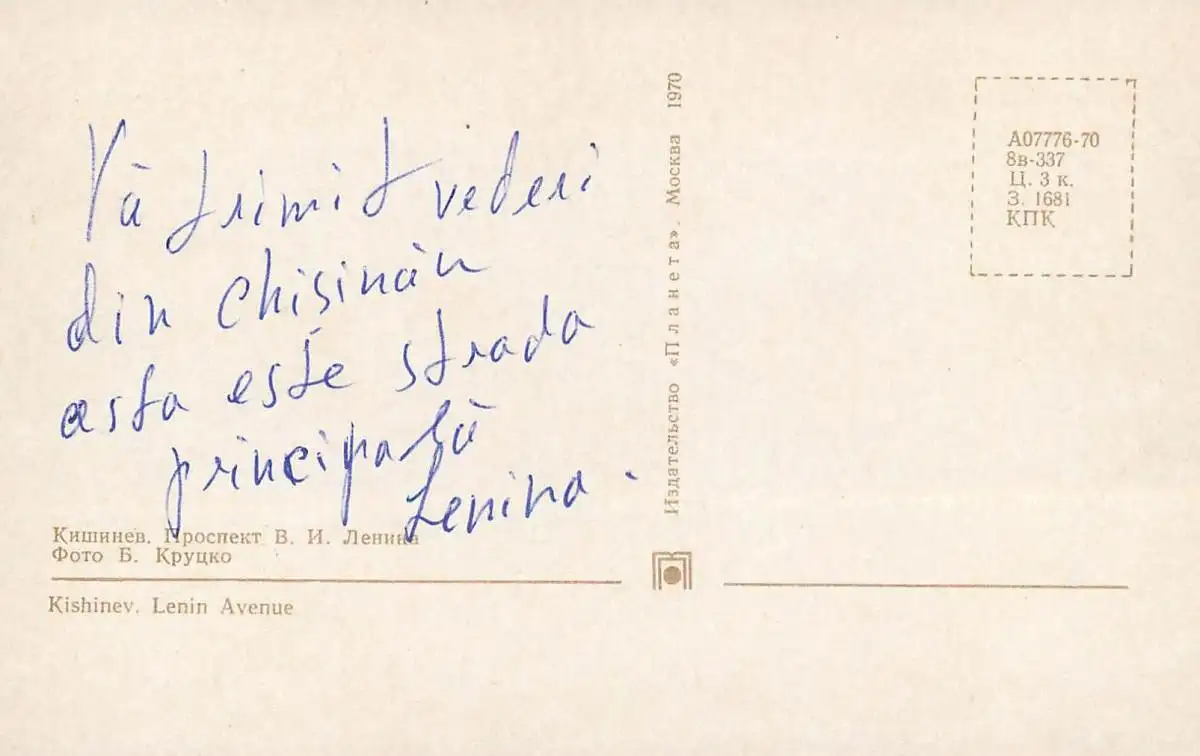 Vă trimit vederi
din chișinău
asta este strada
principală
Lenina.
Кишинев. Проспект В. И. Ленина
Фото Б. Круцко
Kishinev. Lenin Avenue
Издательство «Планета». Москва 1970
А07776-70
8в-337
Ц. 3 к.
З. 1681
КПК